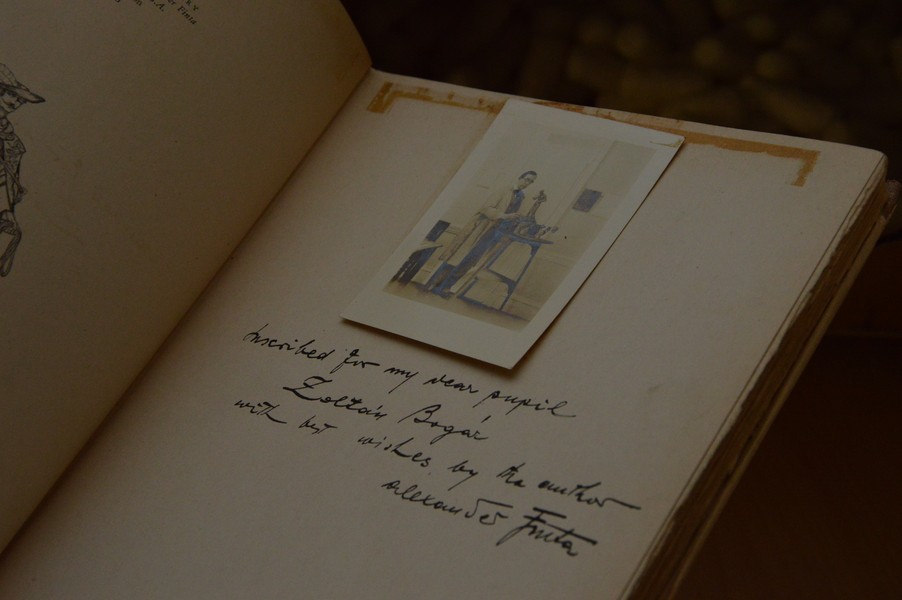 Inscribed for my dear pupil
Zoltán Bogár
with best wishes by the author
Alexander Finta